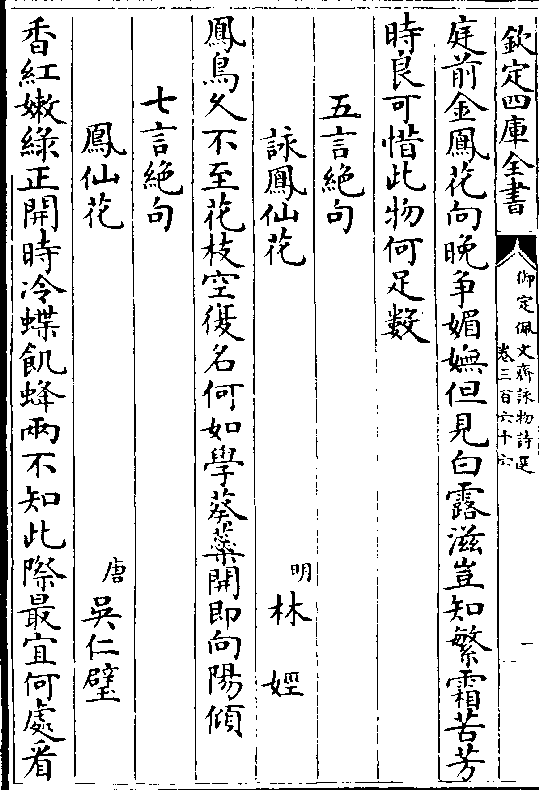 欽定四庫全書
御定佩文齋詠物詩選
卷三百六十六
庭前金鳳花向晚爭媚嫵但見白露滋豈知繁霜苦芳
時良可惜此物何足數
五言絶句
詠鳳仙花
明
林娙
鳳鳥久不至花枝空復名何如學葵藿開即向陽傾
七言絶句
鳳仙花
唐
吳仁璧
香紅嫩緑正開時冷蝶飢蜂兩不知此際最宜何處看